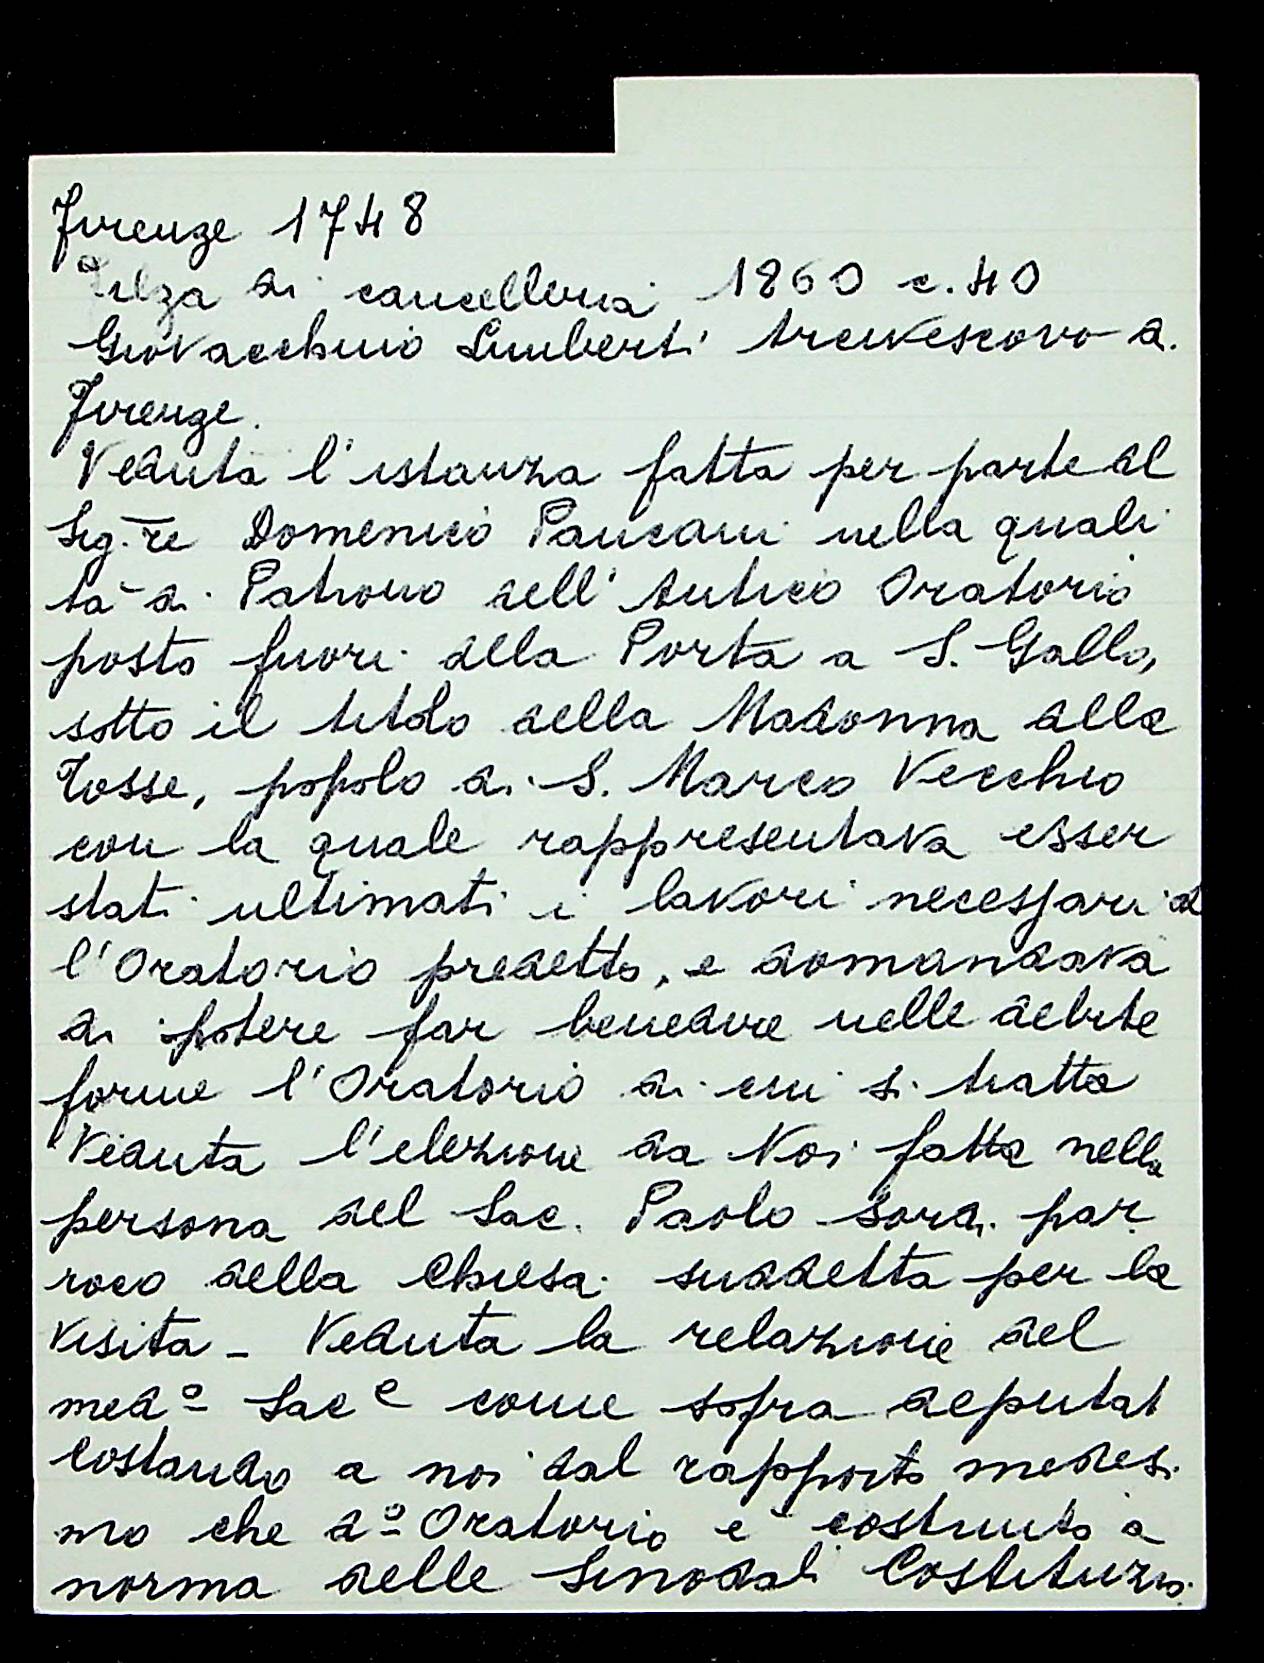 Firenze 1748
Filza di cancelleria 1860 c. 40
Giovacchino Limberti Arcivescovo di
Firenze.
Veduta l'istanza fatta per parte del
Sig.re Domenico Pancani nella quali
tà di Patrono dell'Antico Oratorio
posto fuori della Porta a S. Gallo,
sotto il titolo della Madonna della
Tosse, popolo di S. Marco Vecchio
con la quale rappresentava esser
stati ultimati i lavori necessari al
l'Oratorio predetto, e domandava
di potere far benedire nelle debite
forme l'Oratorio di cui si tratta
Veduta l'elezione da Noi fatta nella
persona del Sac. Paolo Sordi par
roco della Chiesa suddetta per la
visita - Veduta la relazione del
medº Sace come sopra deputat
Costando a noi dal rapporto medesi
mo che dº Oratorio e' costruito a
norma delle Sinodali Costituzio